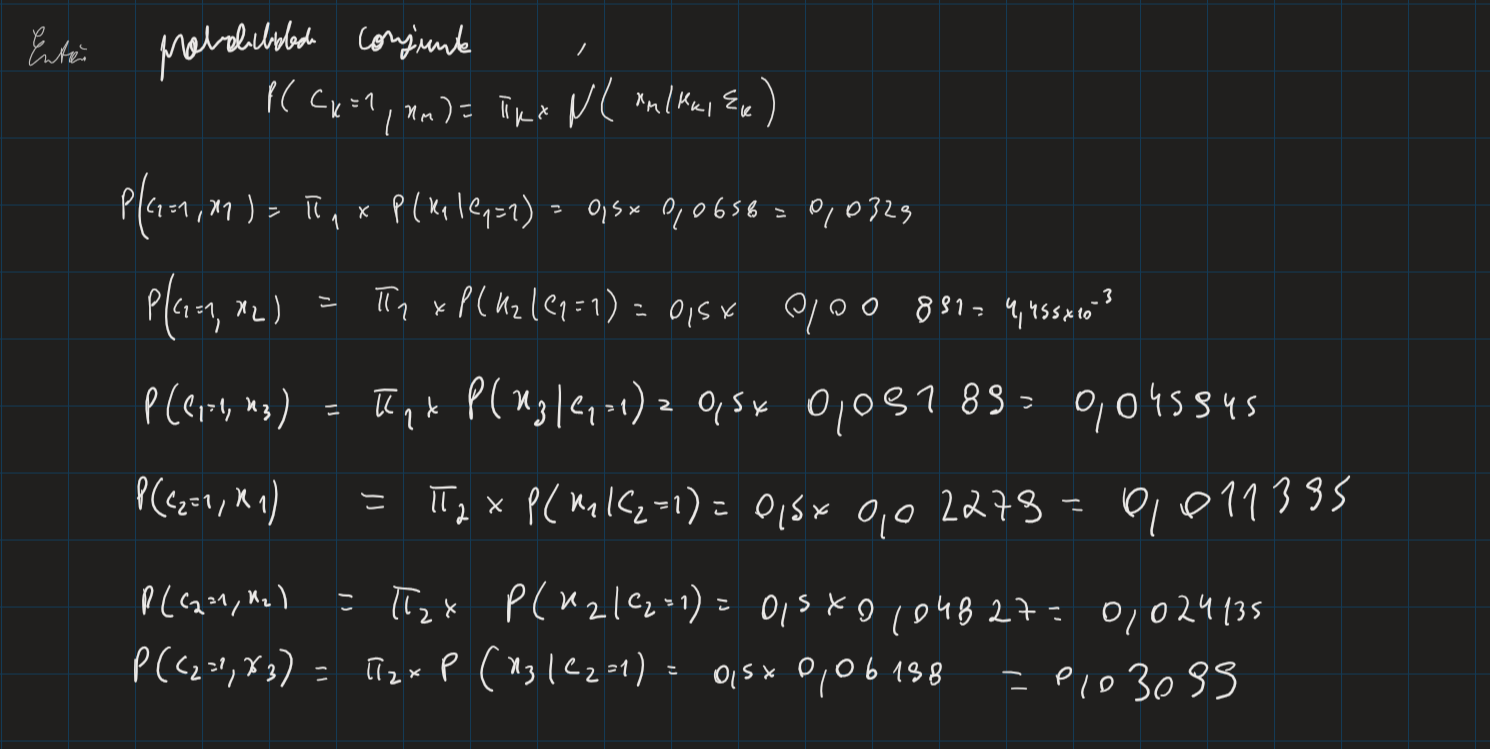 Então probabilidade conjunta
P(C_k=1, x_n) = π_k × N(x_n | μ_k, Σ_k)
P(c₁=1, x1) = π₁ × P(x₁|c₁=1) = 0,5 × 0,0658 = 0,0329
P(c₁=1, x₂) = π₁ × P(x₂|c₁=1) = 0,5 × 0,00 891 = 4,455×10⁻³
P(c₁=1, x₃) = π₁ × P(x₃|c₁=1) = 0,5 × 0,09189 = 0,045945
P(c₂=1, x₁) = π₂ × P(x₁|c₂=1) = 0,5 × 0,02279 = 0,011395
P(c₂=1, x₂) = π₂ × P(x₂|c₂=1) = 0,5 × 0,04827 = 0,024135
P(c₂=1, x₃) = π₂ × P(x₃|c₂=1) = 0,5 × 0,06198 = 0,03099